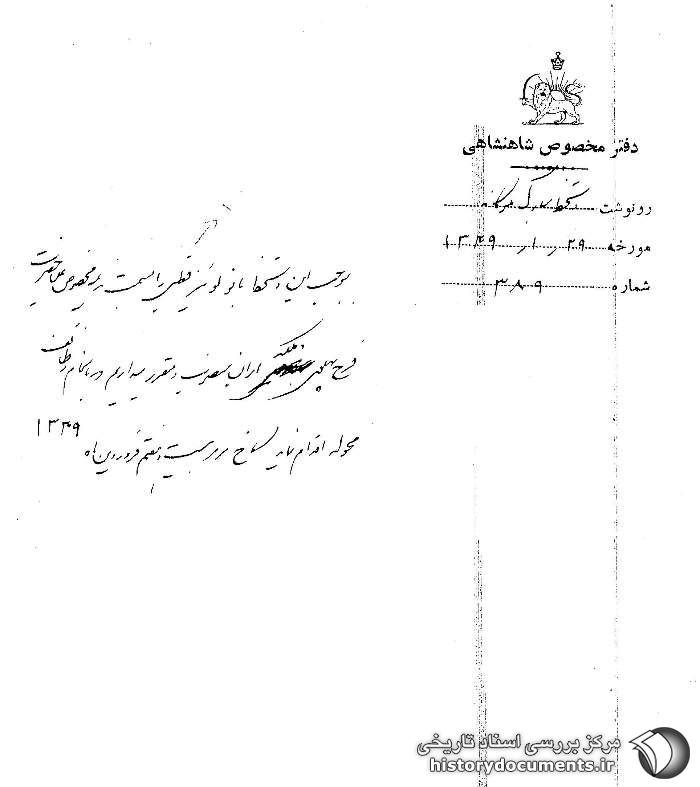 دفتر مخصوص شاهنشاهی
رونوشت دستخط مبارک
مورخه ۲۹ / ۱ / ۱۳۴۹
شماره ۳۸۹
بموجب این دستخط بانو لوئیز قطبی را بسمت ندیمه مخصوص علیاحضرت
فرح پهلوی ملکه ایران منصوب و مقرر میداریم در انجام وظائف
محوله اقدام نماید بتاریخ بیست و هفتم فروردین ماه ۱۳۴۹
مرکز بررسی اسناد تاریخی
historydocuments.ir